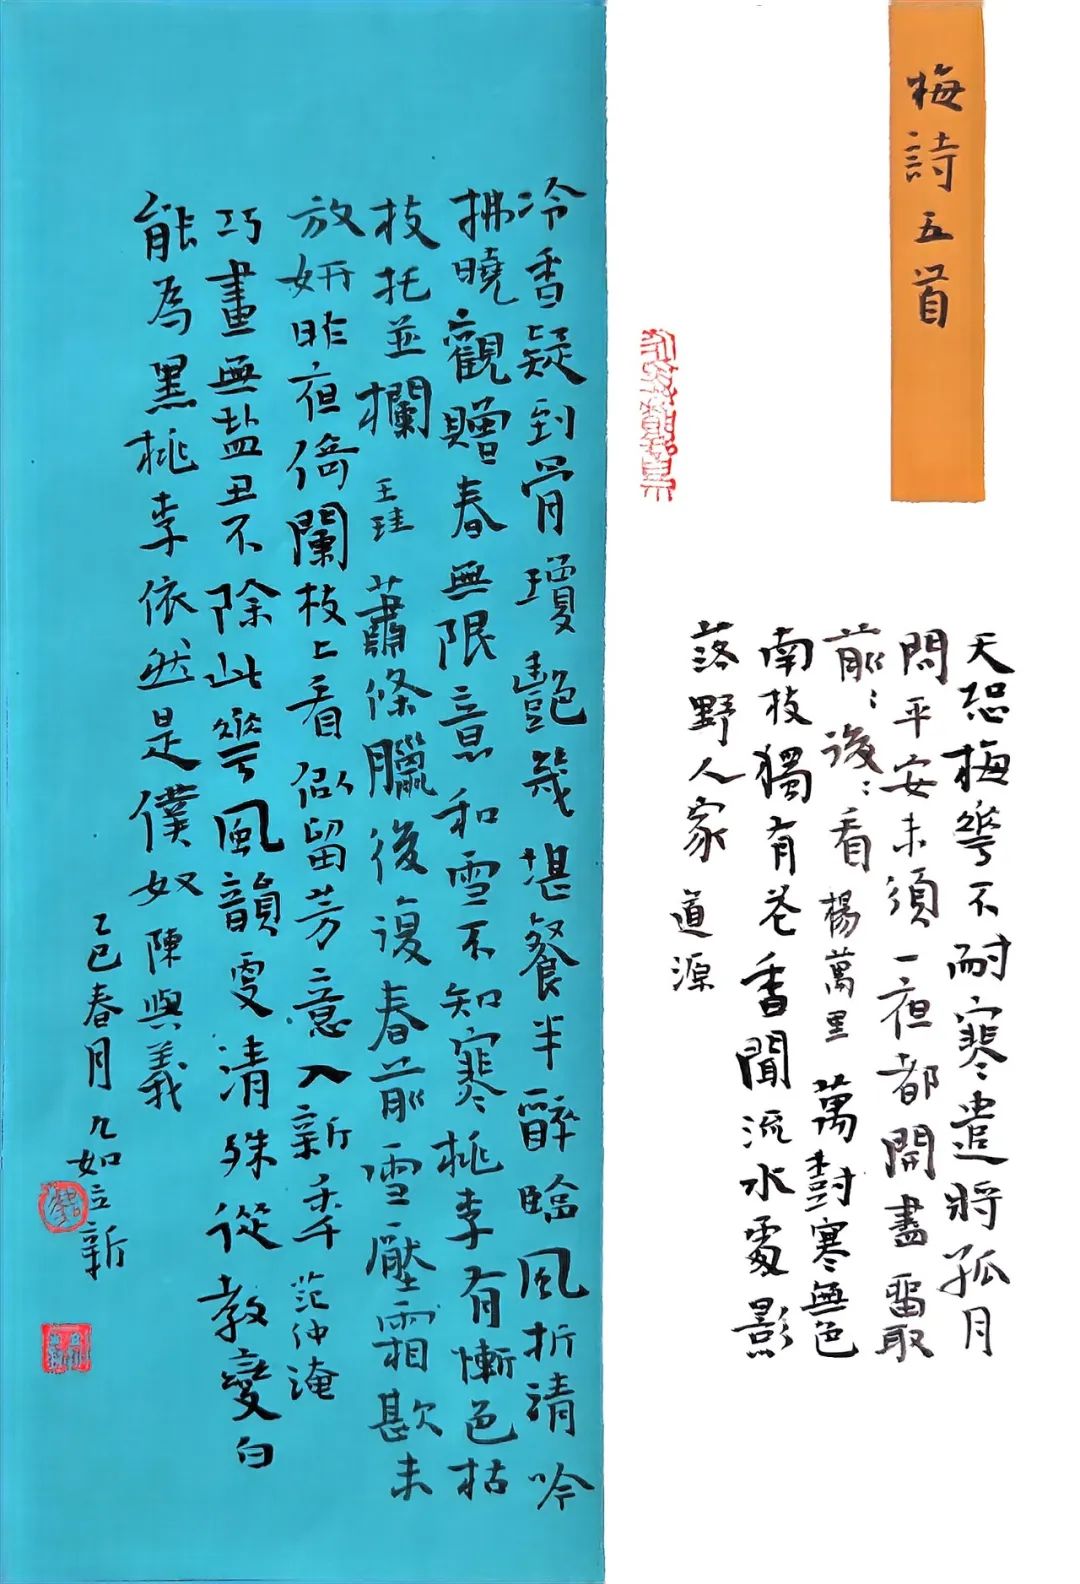 梅詩五首
天恐梅萼不耐寒遣將孤月
問平安未須一夜都開盡留取
前:後:看 楊萬里 萬樹寒無色
南枝獨有花香聞流水處影
落野人家 道源
冷香疑到骨瓊艷幾堪餐半醉臨風折清吟
拂曉觀贈春無限意和雪不知寒桃李有慚色枯
枝托並欄 王珪 蕭條臘後復春前雪壓霜欺未
放妍昨夜倚闌枝上看似留芳意入新年 范仲淹
巧畫無鹽丑不除此花風韻更清殊從教變白
能為黑桃李依然是僕奴 陳與義
乙巳春月九如立新